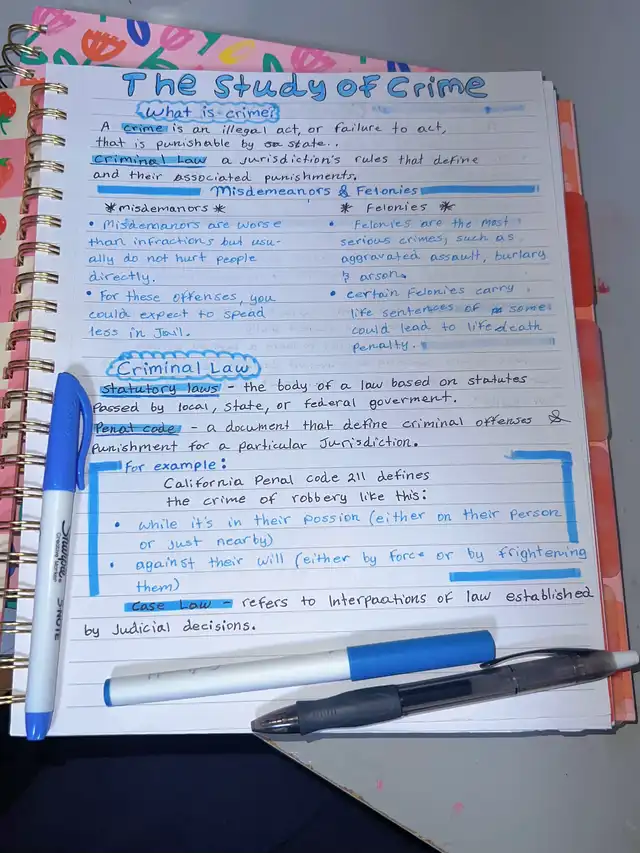 The Study of Crime
What is crime?
A crime is an illegal act, or failure to act,
that is punishable by state..
Criminal Law a jurisdiction's rules that define
and their associated punishments.
Misdemeanors & Felonies
*misdemanors *
• Misdemanors are worse
than infractions but usu-
ally do not hurt people
directly.
• For these offenses, you
could expect to spead
less in Jail.
* Felonies *
• Felonies are the most
serious crimes, such as
aggravated assault, burlary
& arson.
• certain Felonies carry
life sentences of some
could lead to life death
penalty.
Criminal Law
Statutory laws - the body of a law based on statutes
passed by local, state, or federal goverment.
Penal code - a document that define criminal offenses &
Punishment for a particular Jurisdiction.
For example:
California Penal code 211 defines
the crime of robbery like this:
• while it's in their possion (either on their person
or just nearby)
• against their will (either by force or by frightening
them)
Case Law - refers to Interpaations of law established
by Judicial decisions.
Sharpie
S-NOTE